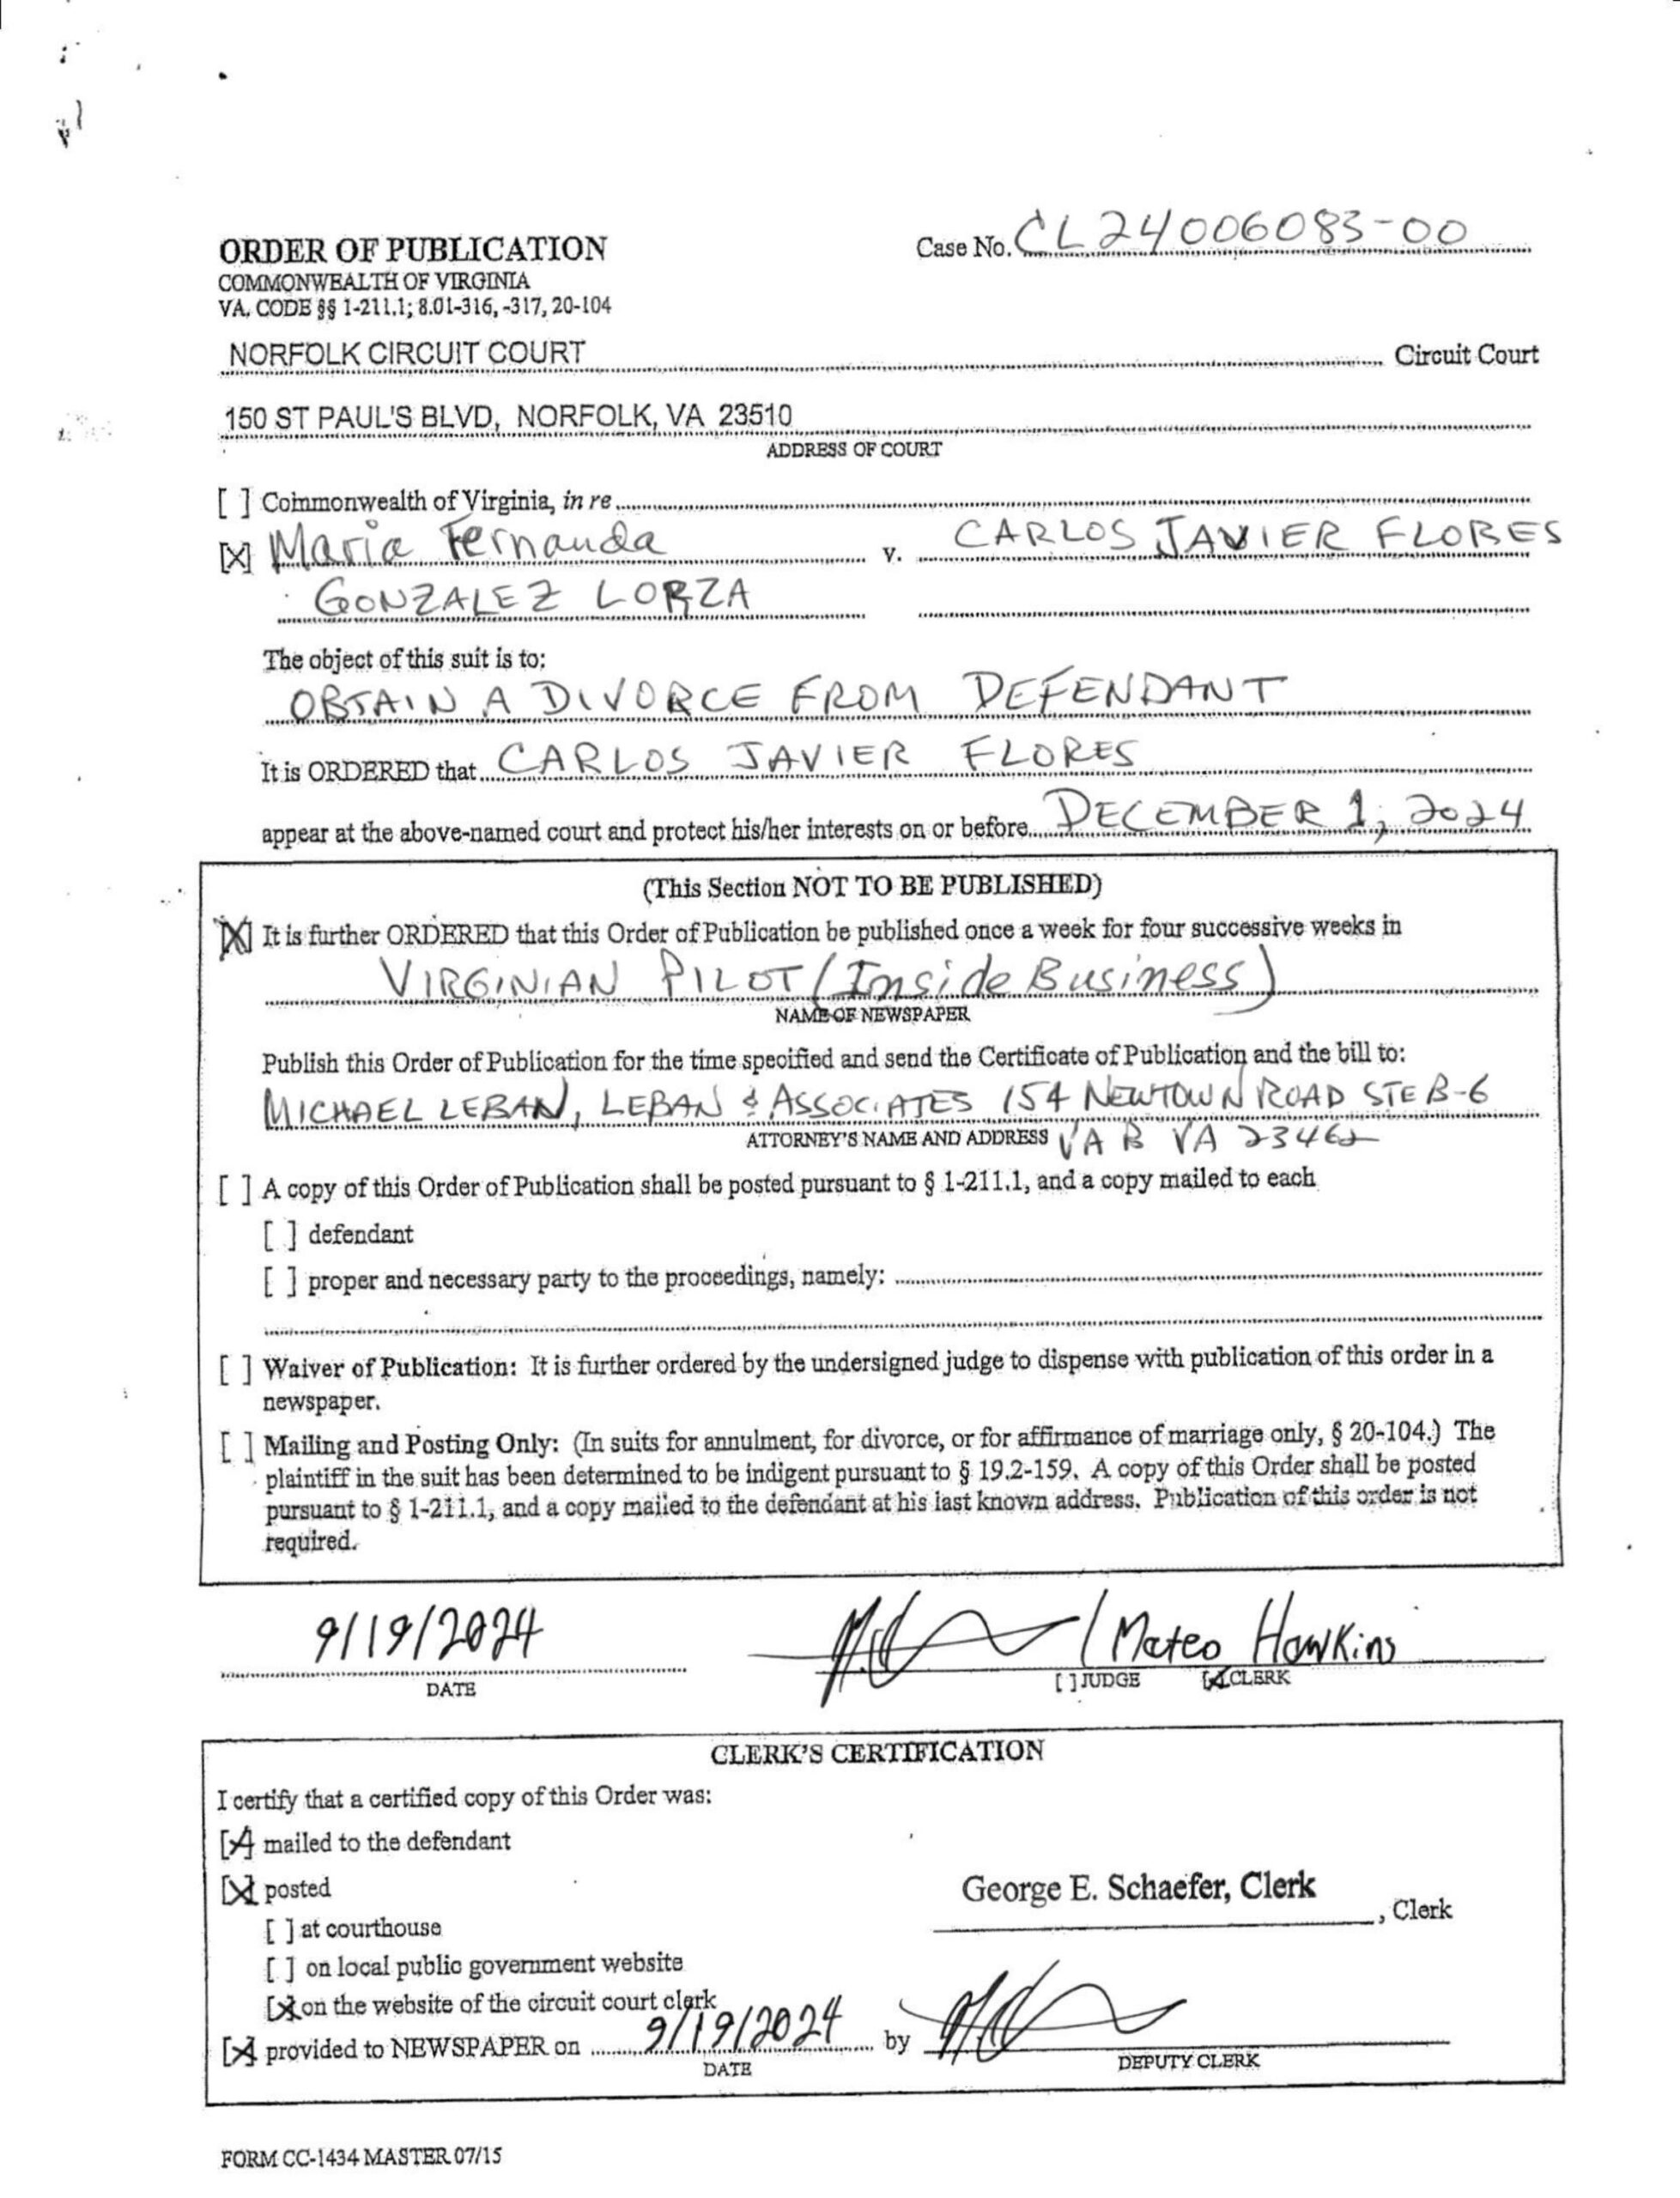 ORDER OF PUBLICATION
Case No. CL24006083-00
COMMONWEALTH OF VIRGINIA
VA. CODE §§ 1-211.1; 8.01-316, -317, 20-104
NORFOLK CIRCUIT COURT Circuit Court
150 ST PAUL'S BLVD, NORFOLK, VA 23510
ADDRESS OF COURT
[ ] Commonwealth of Virginia, in re
[X] Maria Fernanda v. CARLOS JAVIER FLORES
GONZALEZ LORZA
The object of this suit is to:
OBTAIN A DIVORCE FROM DEFENDANT
It is ORDERED that CARLOS JAVIER FLORES
appear at the above-named court and protect his/her interests on or before DECEMBER 1, 2024
(This Section NOT TO BE PUBLISHED)
[X] It is further ORDERED that this Order of Publication be published once a week for four successive weeks in
VIRGINIAN PILOT (Inside Business)
NAME OF NEWSPAPER
Publish this Order of Publication for the time specified and send the Certificate of Publication and the bill to:
MICHAEL LEBAN, LEBAN & ASSOCIATES 154 NEWTOWN ROAD STE B-6
ATTORNEY'S NAME AND ADDRESS VA B VA 23462
[ ] A copy of this Order of Publication shall be posted pursuant to § 1-211.1, and a copy mailed to each
[ ] defendant
[ ] proper and necessary party to the proceedings, namely:
[ ] Waiver of Publication: It is further ordered by the undersigned judge to dispense with publication of this order in a
newspaper.
[ ] Mailing and Posting Only: (In suits for annulment, for divorce, or for affirmance of marriage only, § 20-104.) The
plaintiff in the suit has been determined to be indigent pursuant to § 19.2-159. A copy of this Order shall be posted
pursuant to § 1-211.1, and a copy mailed to the defendant at his last known address. Publication of this order is not
required.
9/19/2024 / Mateo Hawkins
DATE [ ] JUDGE [X] CLERK
CLERK'S CERTIFICATION
I certify that a certified copy of this Order was:
[X] mailed to the defendant
[X] posted
George E. Schaefer, Clerk
, Clerk
[ ] at courthouse
[ ] on local public government website
[X] on the website of the circuit court clerk
[X] provided to NEWSPAPER on 9/19/2024 by
DATE DEPUTY CLERK
FORM CC-1434 MASTER 07/15